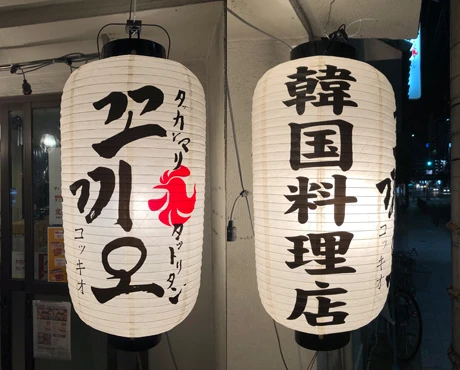 꼬끼오
コッキオ
タッカンマリ
タットリタン
韓国料理店
コッキオ